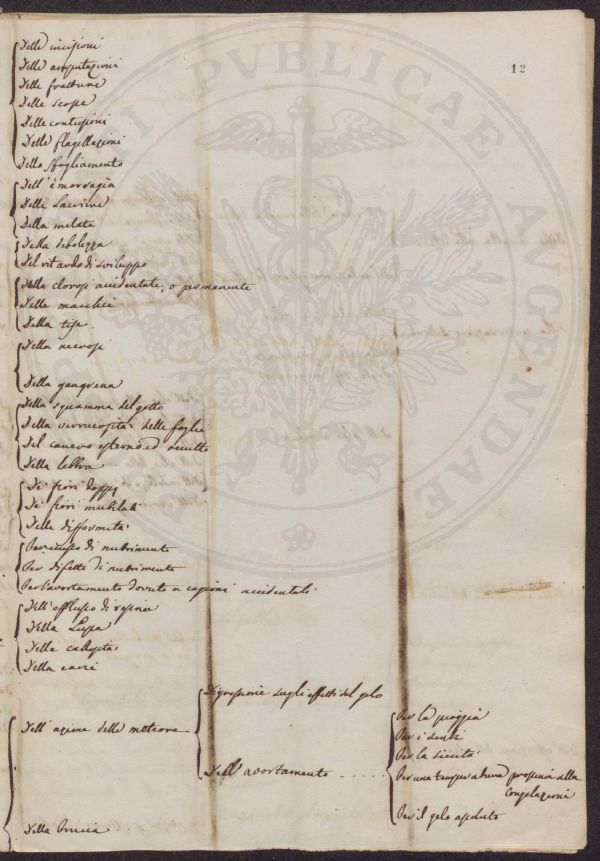 12
Delle incisioni
Delle amputazioni
Delle fratture
Delle scope
Delle contusioni
Delle flagellazioni
Dello sfogliamento
Dell'emorragia
Delle Lacrime
Della melata
Della debolezza
Del ritardo di sviluppo
Della clorosi accidentale, o permanente
Delle macchie
Della tise
Della necrosi
Della gangrena
Della squamma del gotto
Della verrucosità delle foglie
Del cancro esterno ed occulto
Della lebbra
De' fiori doppj
De' fiori mutilati
Delle difformità
Per eccesso di nutrimento
Per difetto di nutrimento
Per l'avortamento dovuto a cagioni accidentali
Dell'efflusso di resina
Della Lupa
Della
Della carie
Dell'azione delle meteore
Digressione sugli effetti del gelo
Dell'avortamento ....
Per la pioggia
Per i
Per la siccità
Per una temperatura prossima alla
congelazione
Per il gelo assoluto
Della brucia
PUBLICAE AUGENDAE